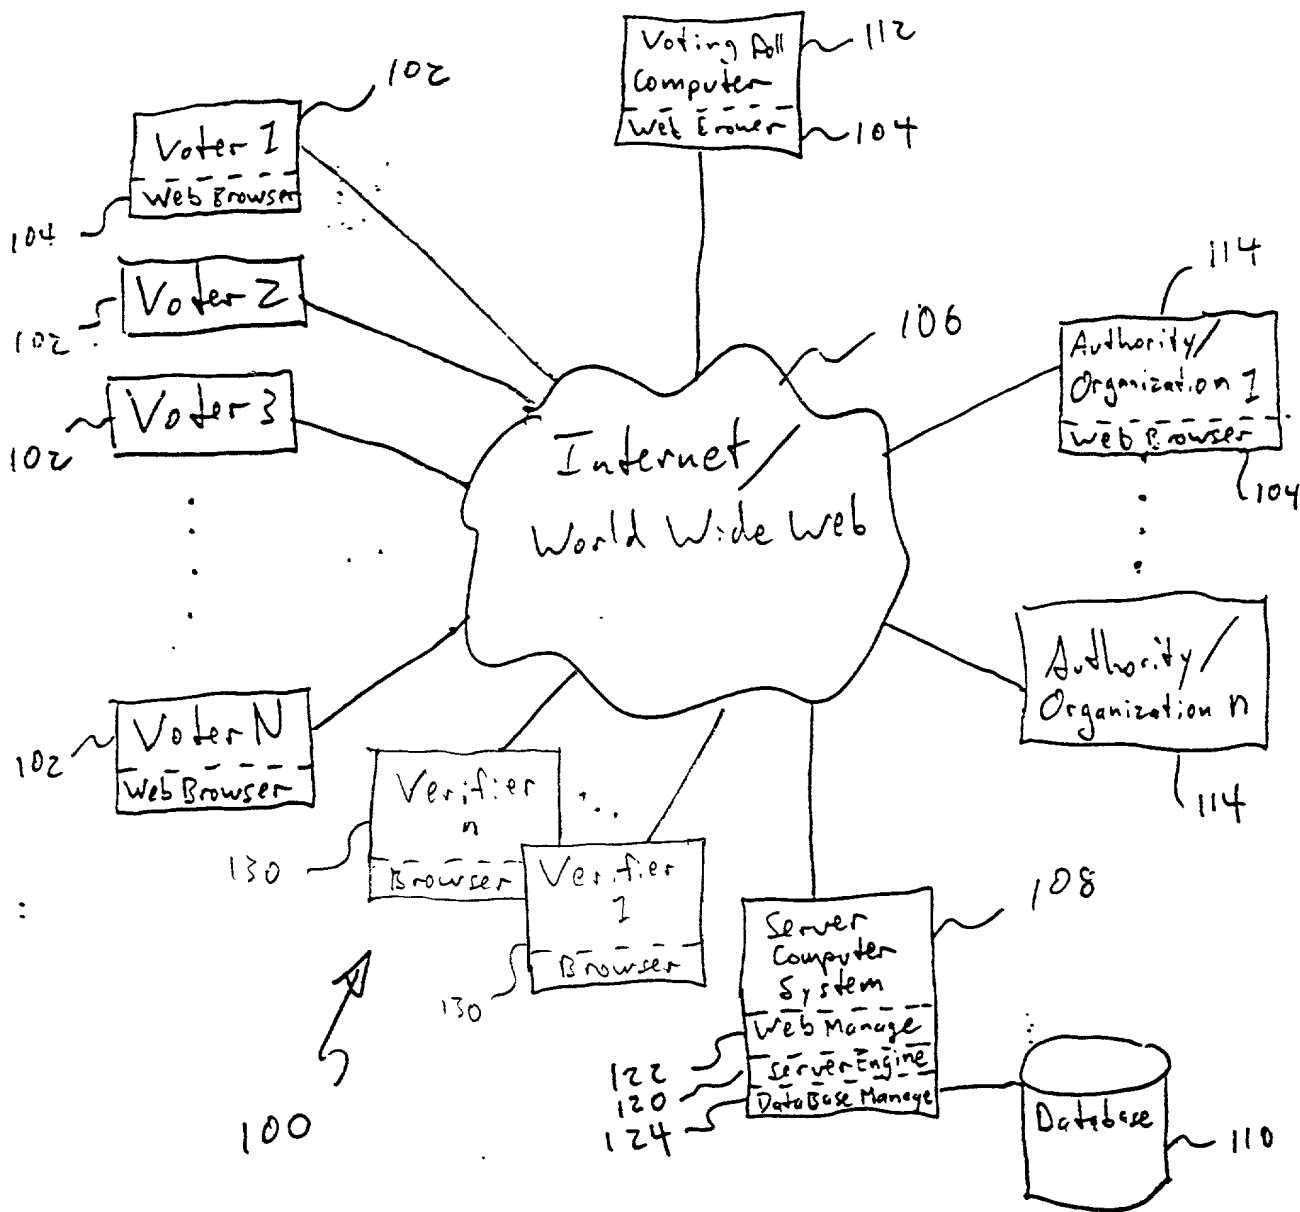 Voting Poll
Computer
112
104
102
Voter 1
Web Browser
104
Voter 2
102
Voter 3
102
106
Internet /
World Wide Web
114
Authority/
Organization 1
Web Browser
104
Authority/
Organization n
114
Voter N
Web Browser
102
Verifier
n
Browser
130
Verifier
1
Browser
130
100
108
Server
Computer
System
Web Manage
Server Engine
DataBase Manage
122
120
124
Database
110